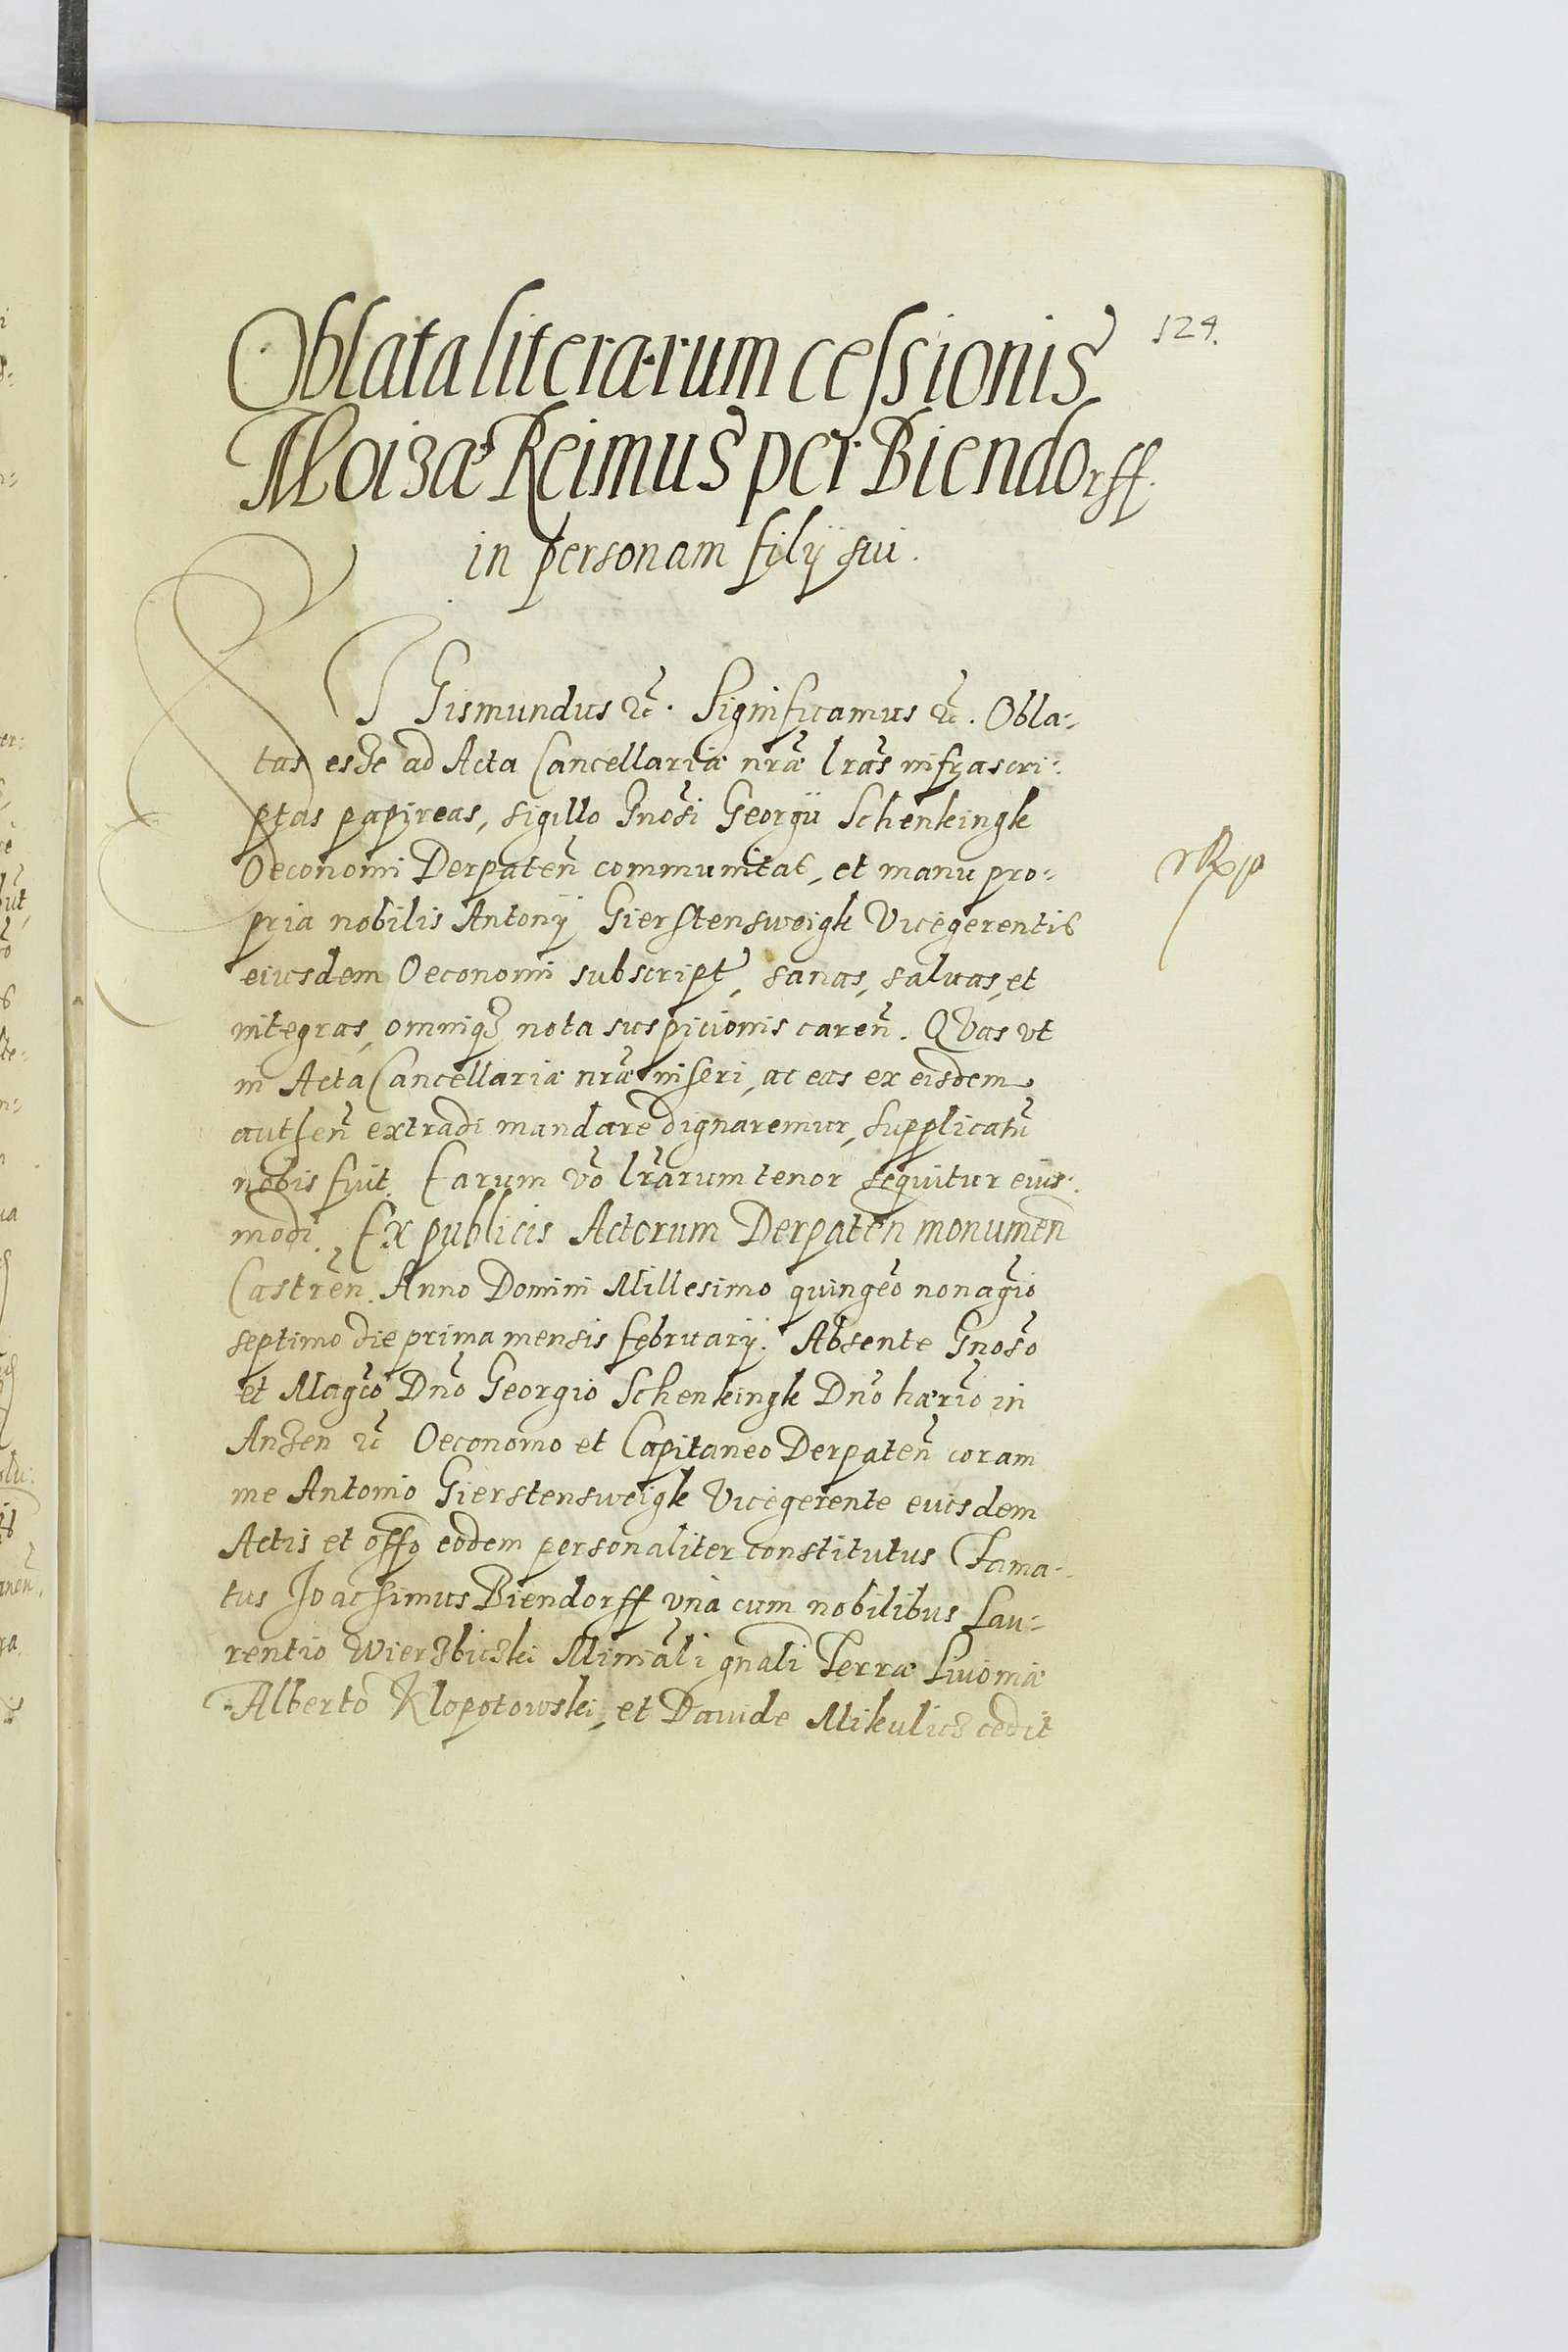 Oblata literarum cessionis
124.
Moizæ Reimus per Biendorff.
in personam filÿ sui.
SIGismundus &c̃. Significamus &c̃. Obla-
tas esse ad Acta Cancellariæ nr̃æ lr̃as infrascri-
ptas papireas, sigillo Gnõsi Georgÿ Schenkingk
Oeconomi Derpateñ communitas, et manu pro-
pria nobilis Antonÿ Gierstensweigk Vicegerentis
eiusdem Oeconomi subscript, sanas, saluas, et
integras, omniq3 nota suspicionis careñ. QVas vt
in Acta Cancellariæ nr̃æ inseri, ac eas ex eisdem
autheñ extradi mandare dignaremur, supplicatũ
nobis fuit. Earum võ lr̃arum tenor sequitur eius-
modi. Ex publicis Actorum Derpateñ monumeñ
Castreñ. Anno Domini Millesimo quingẽo nonagĩo
septimo die prima mensis februarÿ. Absente Gnõso
et Magc̃o Dnõ Georgio Schenkingk Dnõ hær̃io in
Anzen &c̃ Oeconomo et Capitaneo Derpateñ coram
me Antonio Gierstensweigk Vicegerente euisdem
Actis et offo eodem personaliter constitutus Fama-
tus Joachimus Biendorff vnà cum nobilibus Lau-
rentio Wierzbiczki Miniãli gñali Terræ Liuoniæ
Alberto Klopotowski, et Dauide Mikulicz cedit